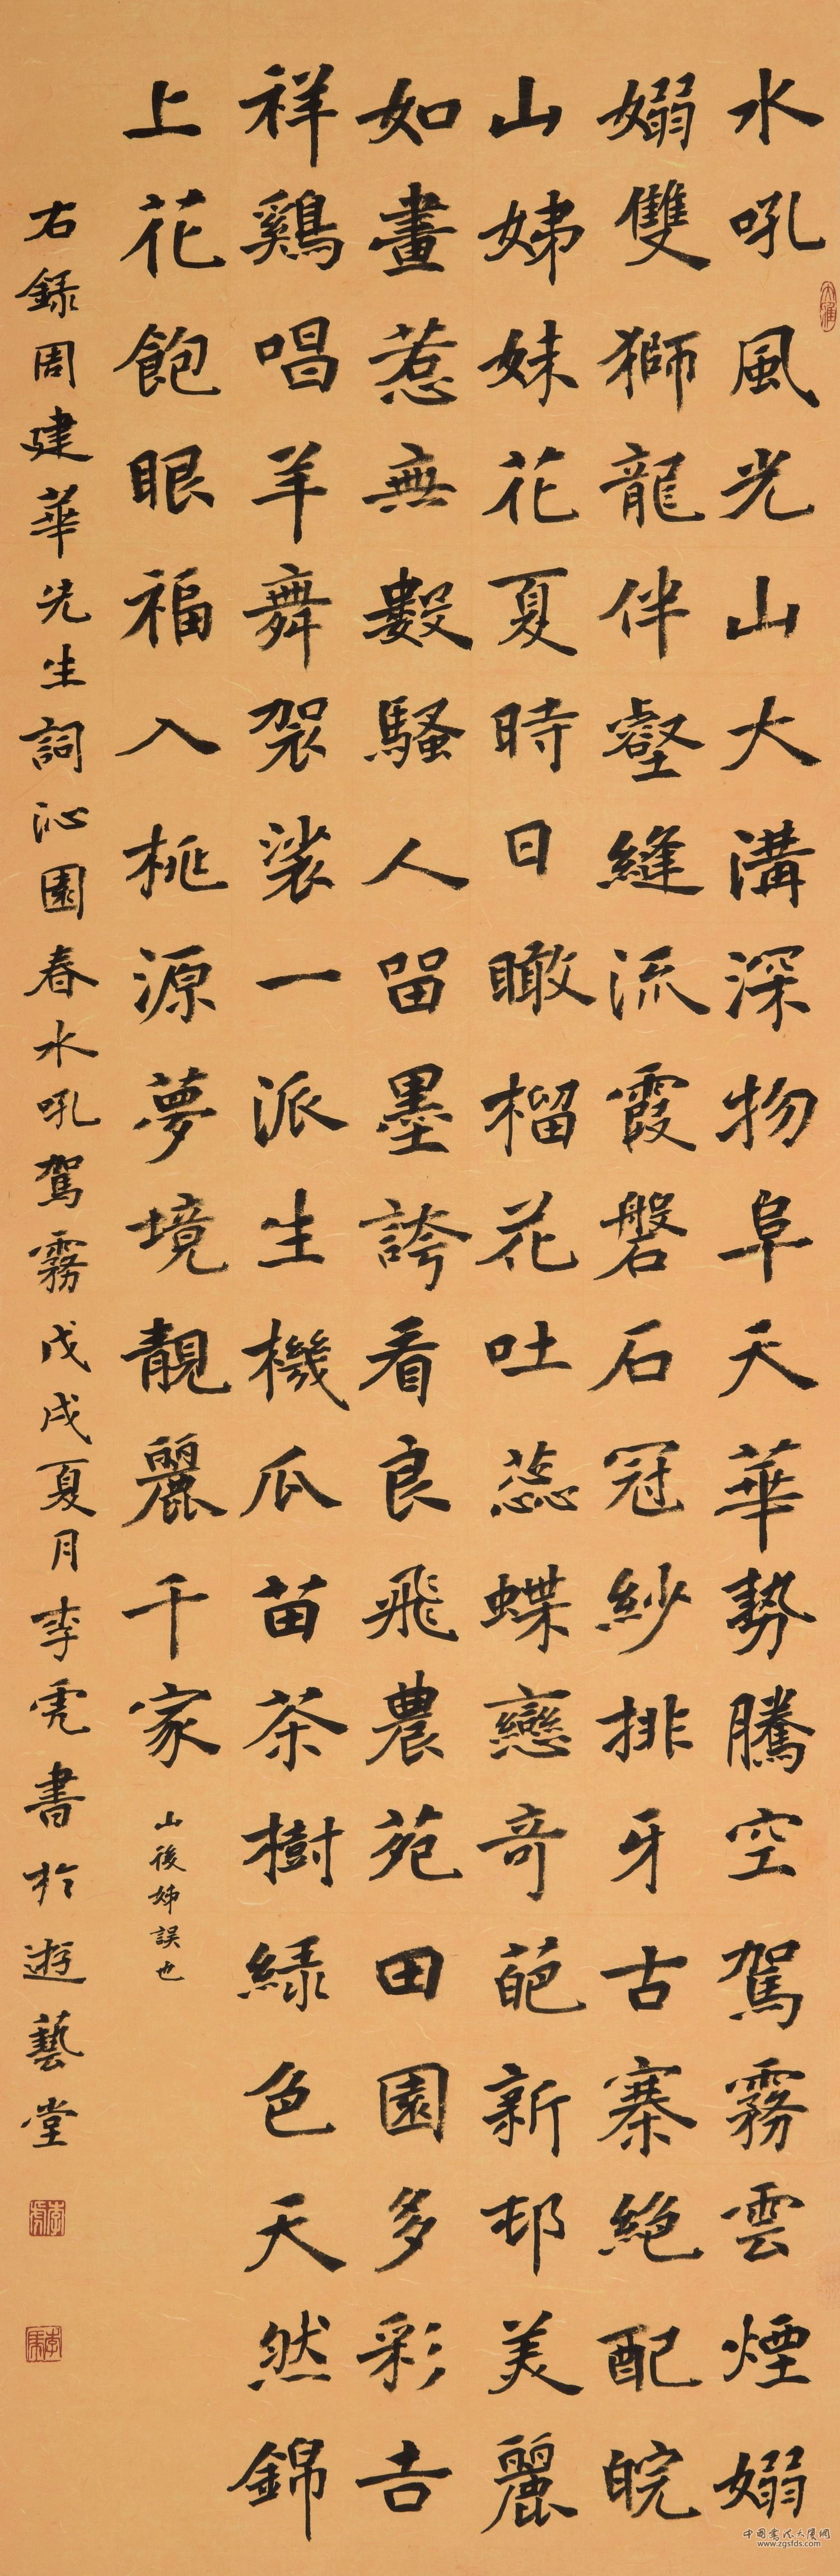 水吼風光山大溝深物阜天華勢騰空駕霧雲煙嫋
嫋雙獅龍伴壑縫流霞磐石冠紗排牙古寨絶配皖
山姊妹花夏時日瞰榴花吐蕊蝶戀奇葩新邨美麗
如畫惹無數騷人留墨誇看良飛農苑田園多彩吉
祥鷄唱羊舞袈裟一派生機瓜苗茶樹緑色天然錦
上花飽眼福入桃源夢境靚麗千家
山後姊誤也
右録周建華先生詞沁園春水吼駕霧戊戌夏月李虎書於遊藝堂
中国書法大厦網
www.zgsfds.com